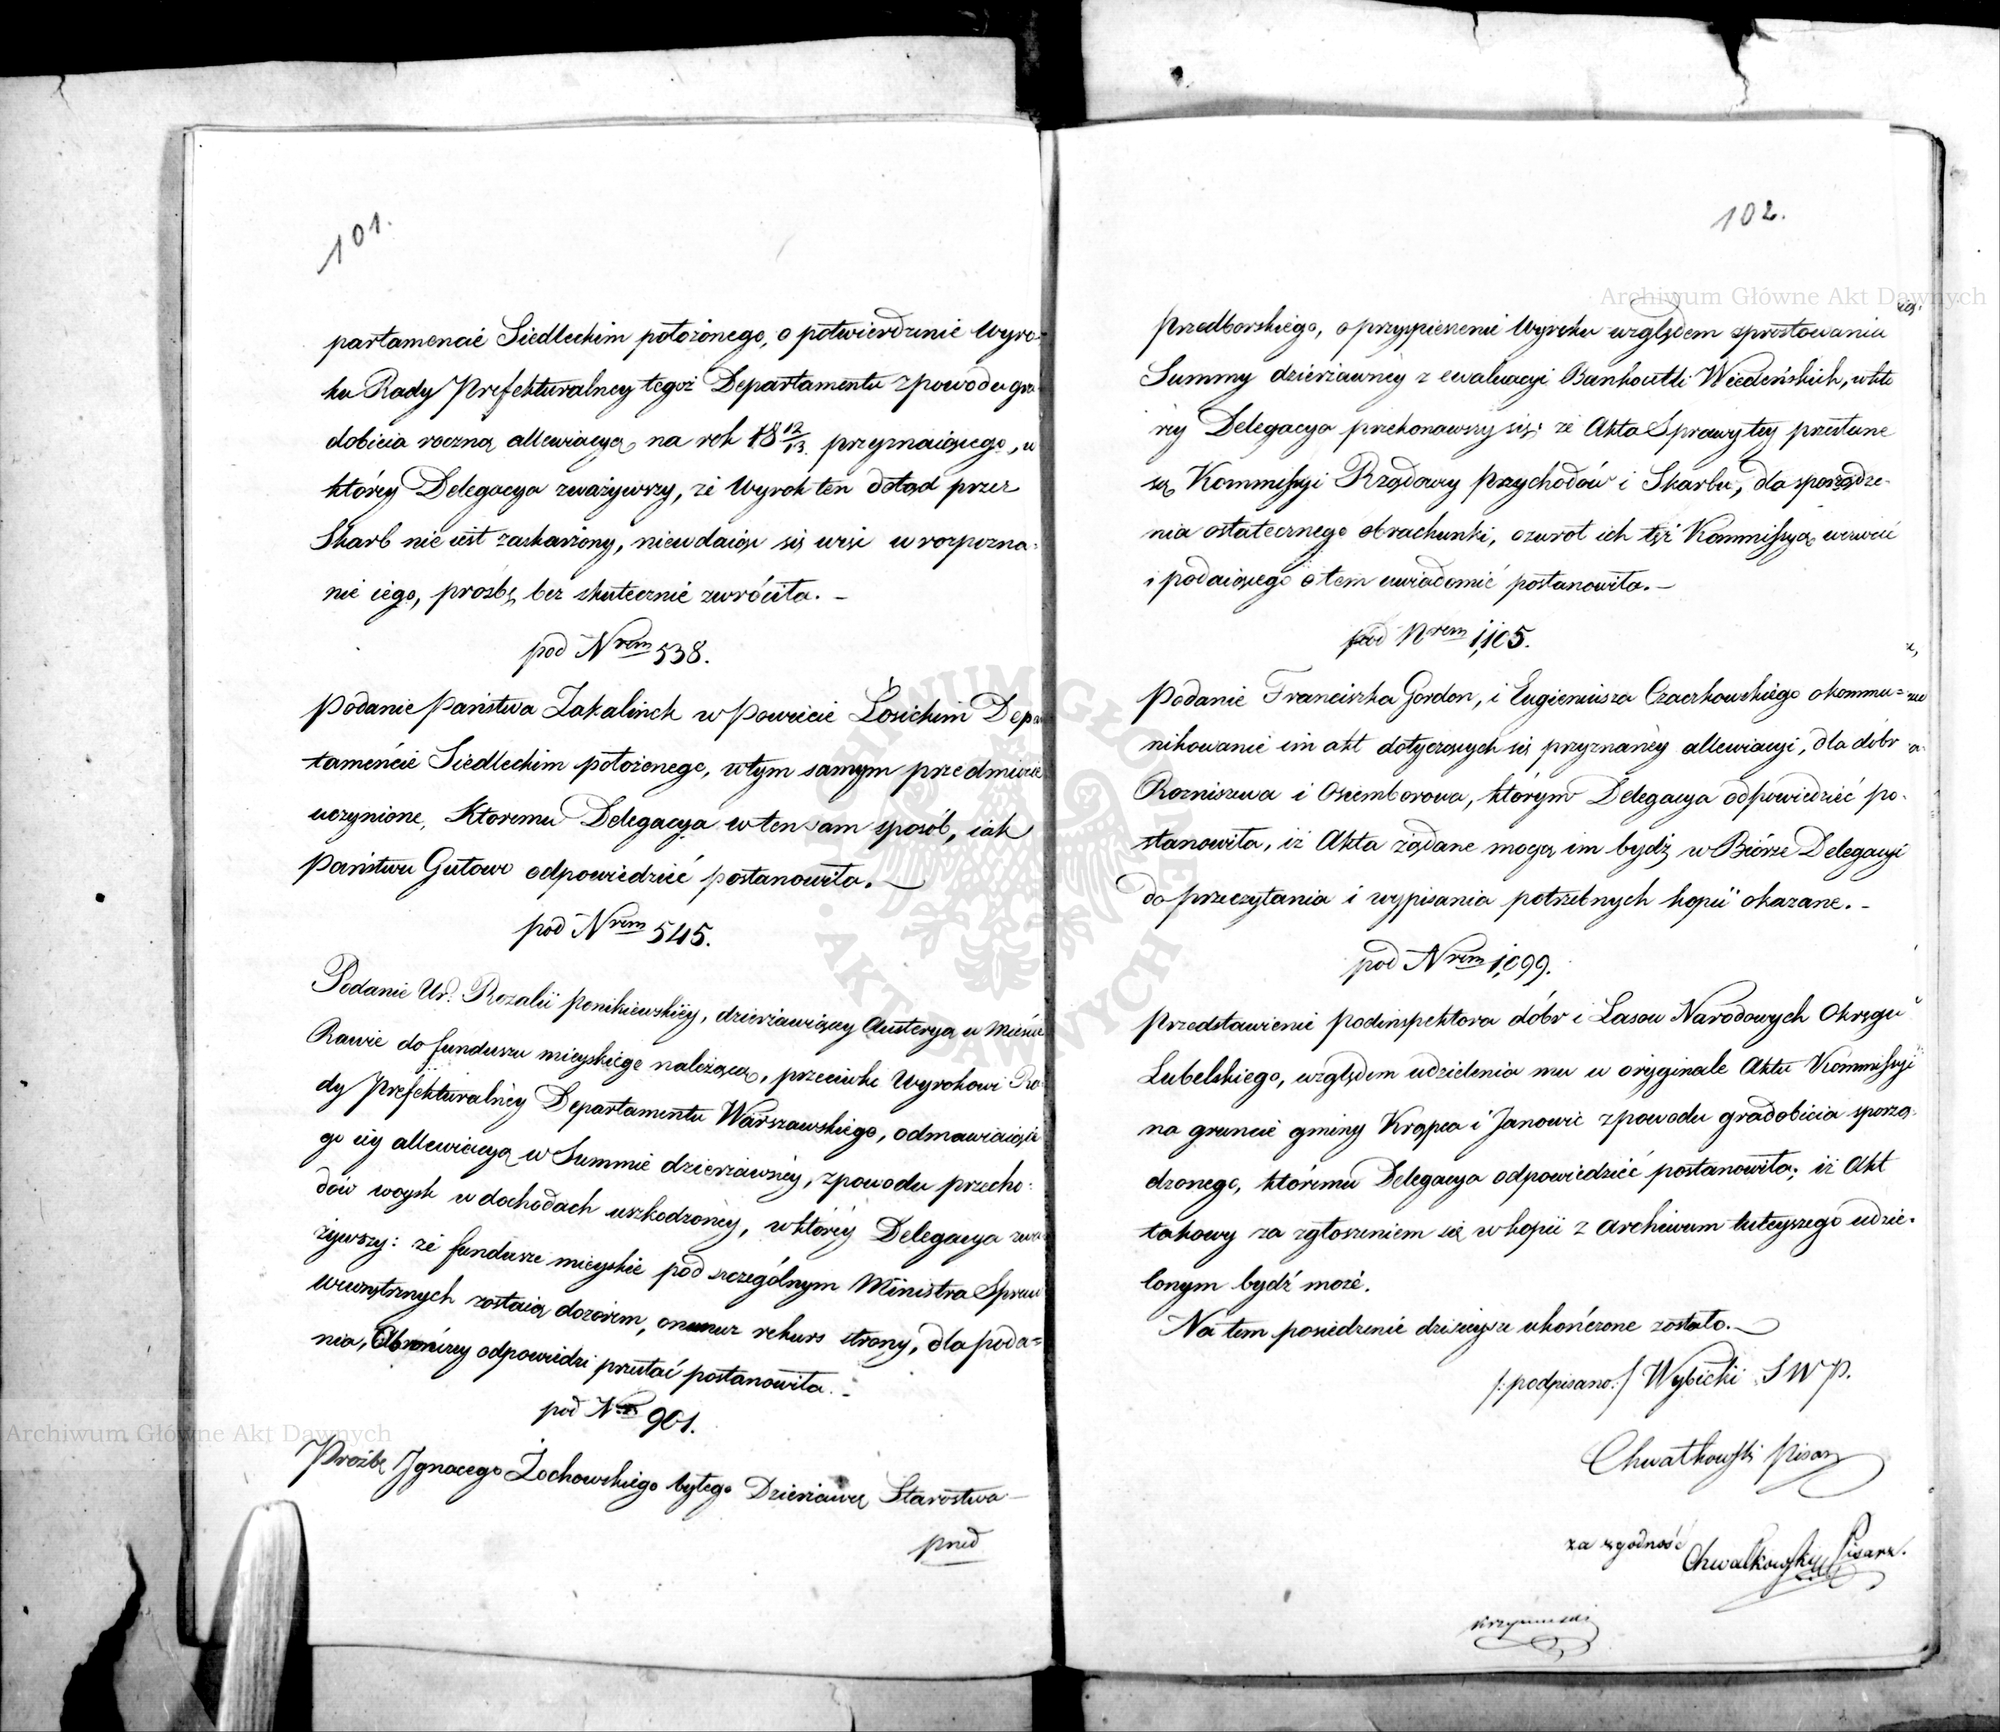 101.
partamencie Siedleckim położonego, o potwierdzenie Wyro-
ku Rady Prefekturalney tegoż Departamentu z powodu gra-
dobicia roczną allewiacyą na rok 18 12/13 przyznaiącego, w
którey Delegacya zważywszy, że Wyrok ten dotąd przez
Skarb nie iest zaskarżony, niewdaiąc się więc w rozpozna-
nie iego, prośbę bez skutecznie zwróciła. –
pod Nrem 538.
Podanie Państwa Zakalinek w Powiecie Łosickim Depar
tamencie Siedleckim położonego, w tym samym przedmiocie
uczynione, Któremu Delegacya w ten sam sposób, iak
Państwu Gutowo odpowiedzieć postanowiła. –
pod Nrem 545.
Podanie Ur. Rozalii Ponikiewskiéy, dzierżawiącey Austeryą w Mieście
Rawie do funduszu mieyskiego należącą, przeciwko Wyrokowi Ra-
dy Prefekturalnéy Departamentu Warszawskiego, odmawiaiące
go iéy allewiacyą w Summie dzierżawnéy, z powodu przecho-
dów woysk w dochodach uszkodzonéy, w któréy Delegacya zwa
żywszy: że fundusze mieyskie pod szczególnym Ministra Spraw
Wewnętrznych zostaią dozorem, onemuz rekurs strony, dla poda-
nia, Obronczey odpowiedzi przesłać postanowiła. –
pod Nrem 901.
Prożbę Ignacego Żochowskiego byłego Dzierżawcę Starostwa –
Przed
102.
Przedborskiego, o przyspieszenie Wyroku względem sprostowania
Summy dzierżawnéy z ewaluacyi Bankocetli Wiedeńskich, w któ
réy Delegacya przekonawszy się: że Akta Sprawy tey przesłane
są Kommissyi Rządowy Przychodów i Skarbu, dla sporządze-
nia ostatecznego obrachunki, o zwrot ich téż Kommissyą wezwać
i podaiącego o tem uwiadomić postanowiła. –
pod Nrem 1,105.
Podanie Franciszka Gordon, i Eugieniusza Czaczkowskiego o kommu-
nikowanie im akt dotyczących się przyznanéy allewiacyi, dla dóbr
Rozniszewa i Osiemborowa, którym Delegacya odpowiedzieć po-
stanowiła, iż Akta żądane mogą im bydź w Biórze Delegacyi
do przeczytania i wypisania potrzebnych kopii okazane. –
pod Nrem 1,099.
Przedstawienie Podinspektora dóbr i Lasow Narodowych Okręgu
Lubelskiego, względem udzielenia mu w oryginale Aktu Kommissyi
na gruncie gminy Krępca i Janowic z powodu gradobicia sporzą-
dzonego, któremu Delegacya odpowiedzieć postanowiła; iż Akt
takowy za zgłoszeniem się w kopii z Archiwum tuteyszego udzie-
lonym bydź może.
Na tem posiedzenie dzisieysze ukończone zostało. –
/: podpisano :/ Wybicki S W P.
Chwatkowski Pisarz
za zgodność Chwalkowski Pisarz.
Archiwum Główne Akt Dawnych
Archiwum Główne Akt Dawnych
ARCHIWUM GŁÓWNE AKT DAWNYCH